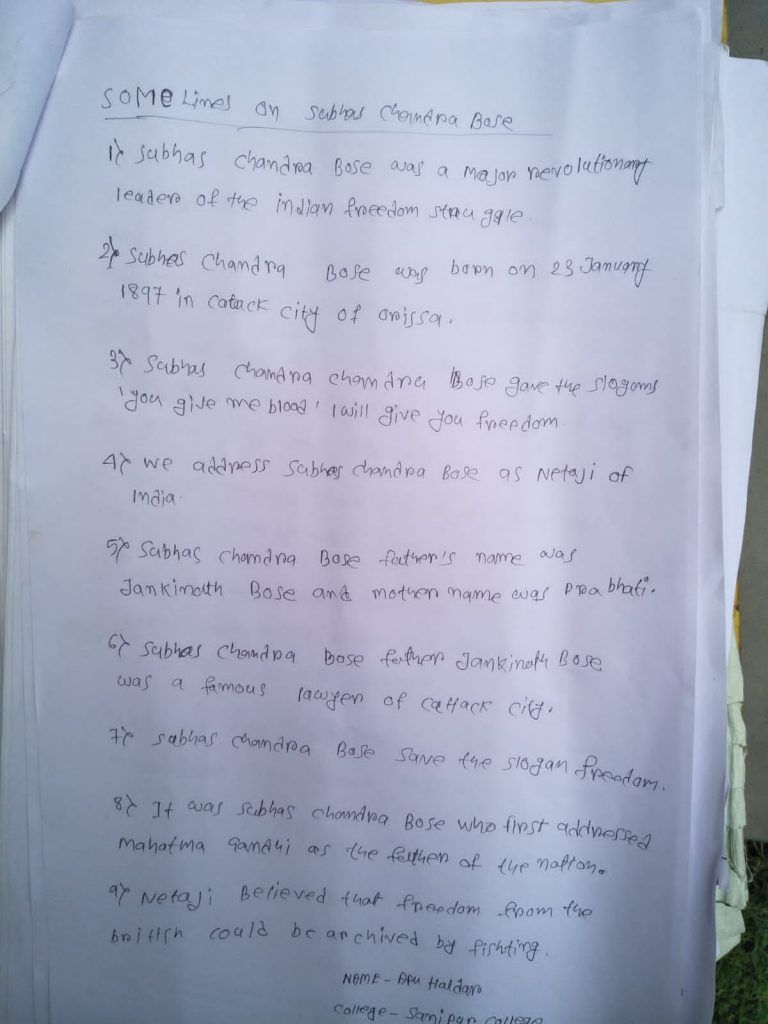 SOME Lines on Subhas Chandra Bose
1) Subhas Chandra Bose was a major revolutionary
leader of the indian freedom strauggle.
2) Subhas Chandra Bose was born on 23 January
1897 in catack city of orissa.
3) Subhas Chandra chandra Bose gave the slogans
'you give me blood' I will give you freedom.
4) We address Subhas Chandra Bose as Netaji of
India.
5) Subhas Chandra Bose father's name was
Jankinath Bose and mother name was Prabhati.
6) Subhas Chandra Bose father Jankinath Bose
was a famous lawyer of cattack city.
7) Subhas Chandra Bose save the slogan freedom.
8) It was Subhas Chandra Bose who first addressed
Mahatma Gandhi as the father of the nation.
9) Netaji Believed that freedom from the
british could be archived by fishting.
NAME - Apu Haldar
College - College